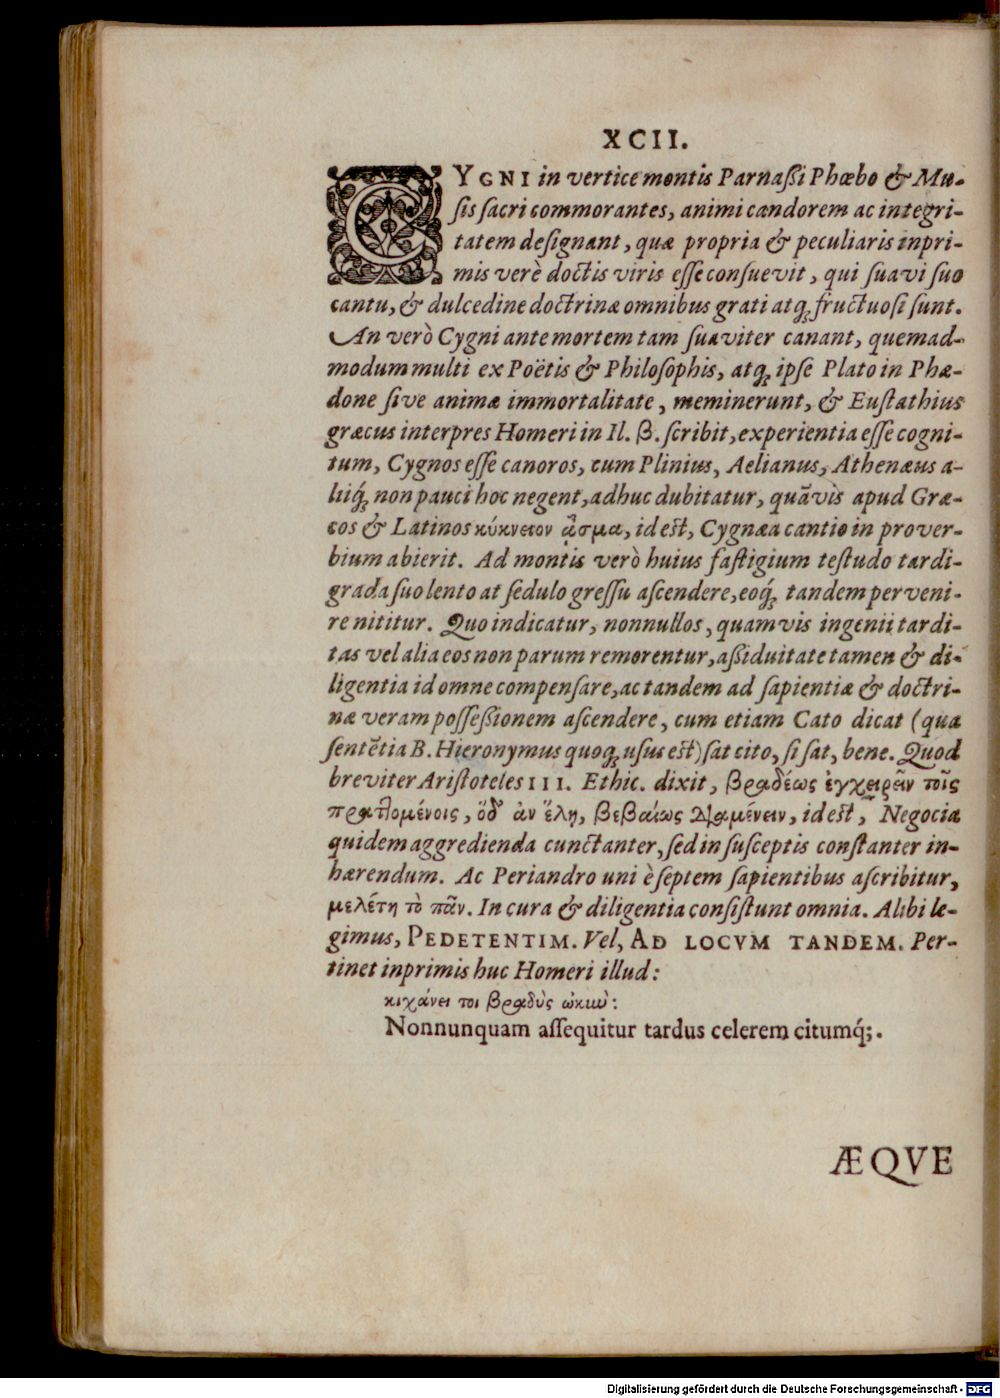 XCII.
CYGNI in vertice montis Parnaßi Phœbo & Mu-
ſis ſacri commorantes, animi candorem ac integri-
tatem deſignant, quæ propria & peculiaris inpri-
mis verè doctis viris eſſe conſuevit, qui ſuavi ſuo
cantu, & dulcedine doctrinæ omnibus grati atq́ꝫ fructuoſi ſunt.
An verò Cygni ante mortem tam ſuaviter canant, quemad-
modum multi ex Poëtis & Philoſophis, atq́ꝫ ipſe Plato in Phæ-
done ſive animæ immortalitate, meminerunt, & Euſtathius
græcus interpres Homeri in Il. β. ſcribit, experientia eſſe cogni-
tum, Cygnos eſſe canoros, cum Plinius, Aelianus, Athenæus a-
liiq́ꝫ non pauci hoc negent, adhuc dubitatur, quãvis apud Græ-
cos & Latinos κύκνειον ᾆσμα, id eſt, Cygnæa cantio in prover-
bium abierit. Ad montis verò huius faſtigium teſtudo tardi-
grada ſuo lento at ſedulo greſſu aſcendere, eoq́ꝫ tandem perveni-
re nititur. Quo indicatur, nonnullos, quamvis ingenii tardi-
tas vel alia eos non parum remorentur, aßiduitate tamen & di-
ligentia id omne compenſare, ac tandem ad ſapientiæ & doctri-
næ veram poſſeßionem aſcendere, cum etiam Cato dicat (qua
ſentẽtia B. Hieronymus quoq́ꝫ uſus eſt) ſat cito, ſi ſat, bene. Quod
breviter Ariſtoteles III. Ethic. dixit, βραδέως ἐγχειρεῖν τοῖς
πραττομένοις, ὅδ' ἀν ἕλη, βεβαίως διαμένειν, id eſt, Negocia
quidem aggredienda cunctanter, ſed in ſuſceptis conſtanter in-
hærendum. Ac Periandro uni è ſeptem ſapientibus aſcribitur,
μελέτη τὸ πᾶν. In cura & diligentia conſiſtunt omnia. Alibi le-
gimus, PEDETENTIM. Vel, AD LOCVM TANDEM. Per-
tinet inprimis huc Homeri illud:
κιχάνει τοι βραδὺς ὠκιὺ:
Nonnunquam aſſequitur tardus celerem citumq́ꝫ.
ÆQVE
Digitalisierung gefördert durch die Deutsche Forschungsgemeinschaft - DFG